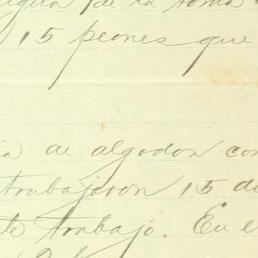 de la toma
15 peones que
de algodon con
trabajaron 15 di
de trabajo. En e